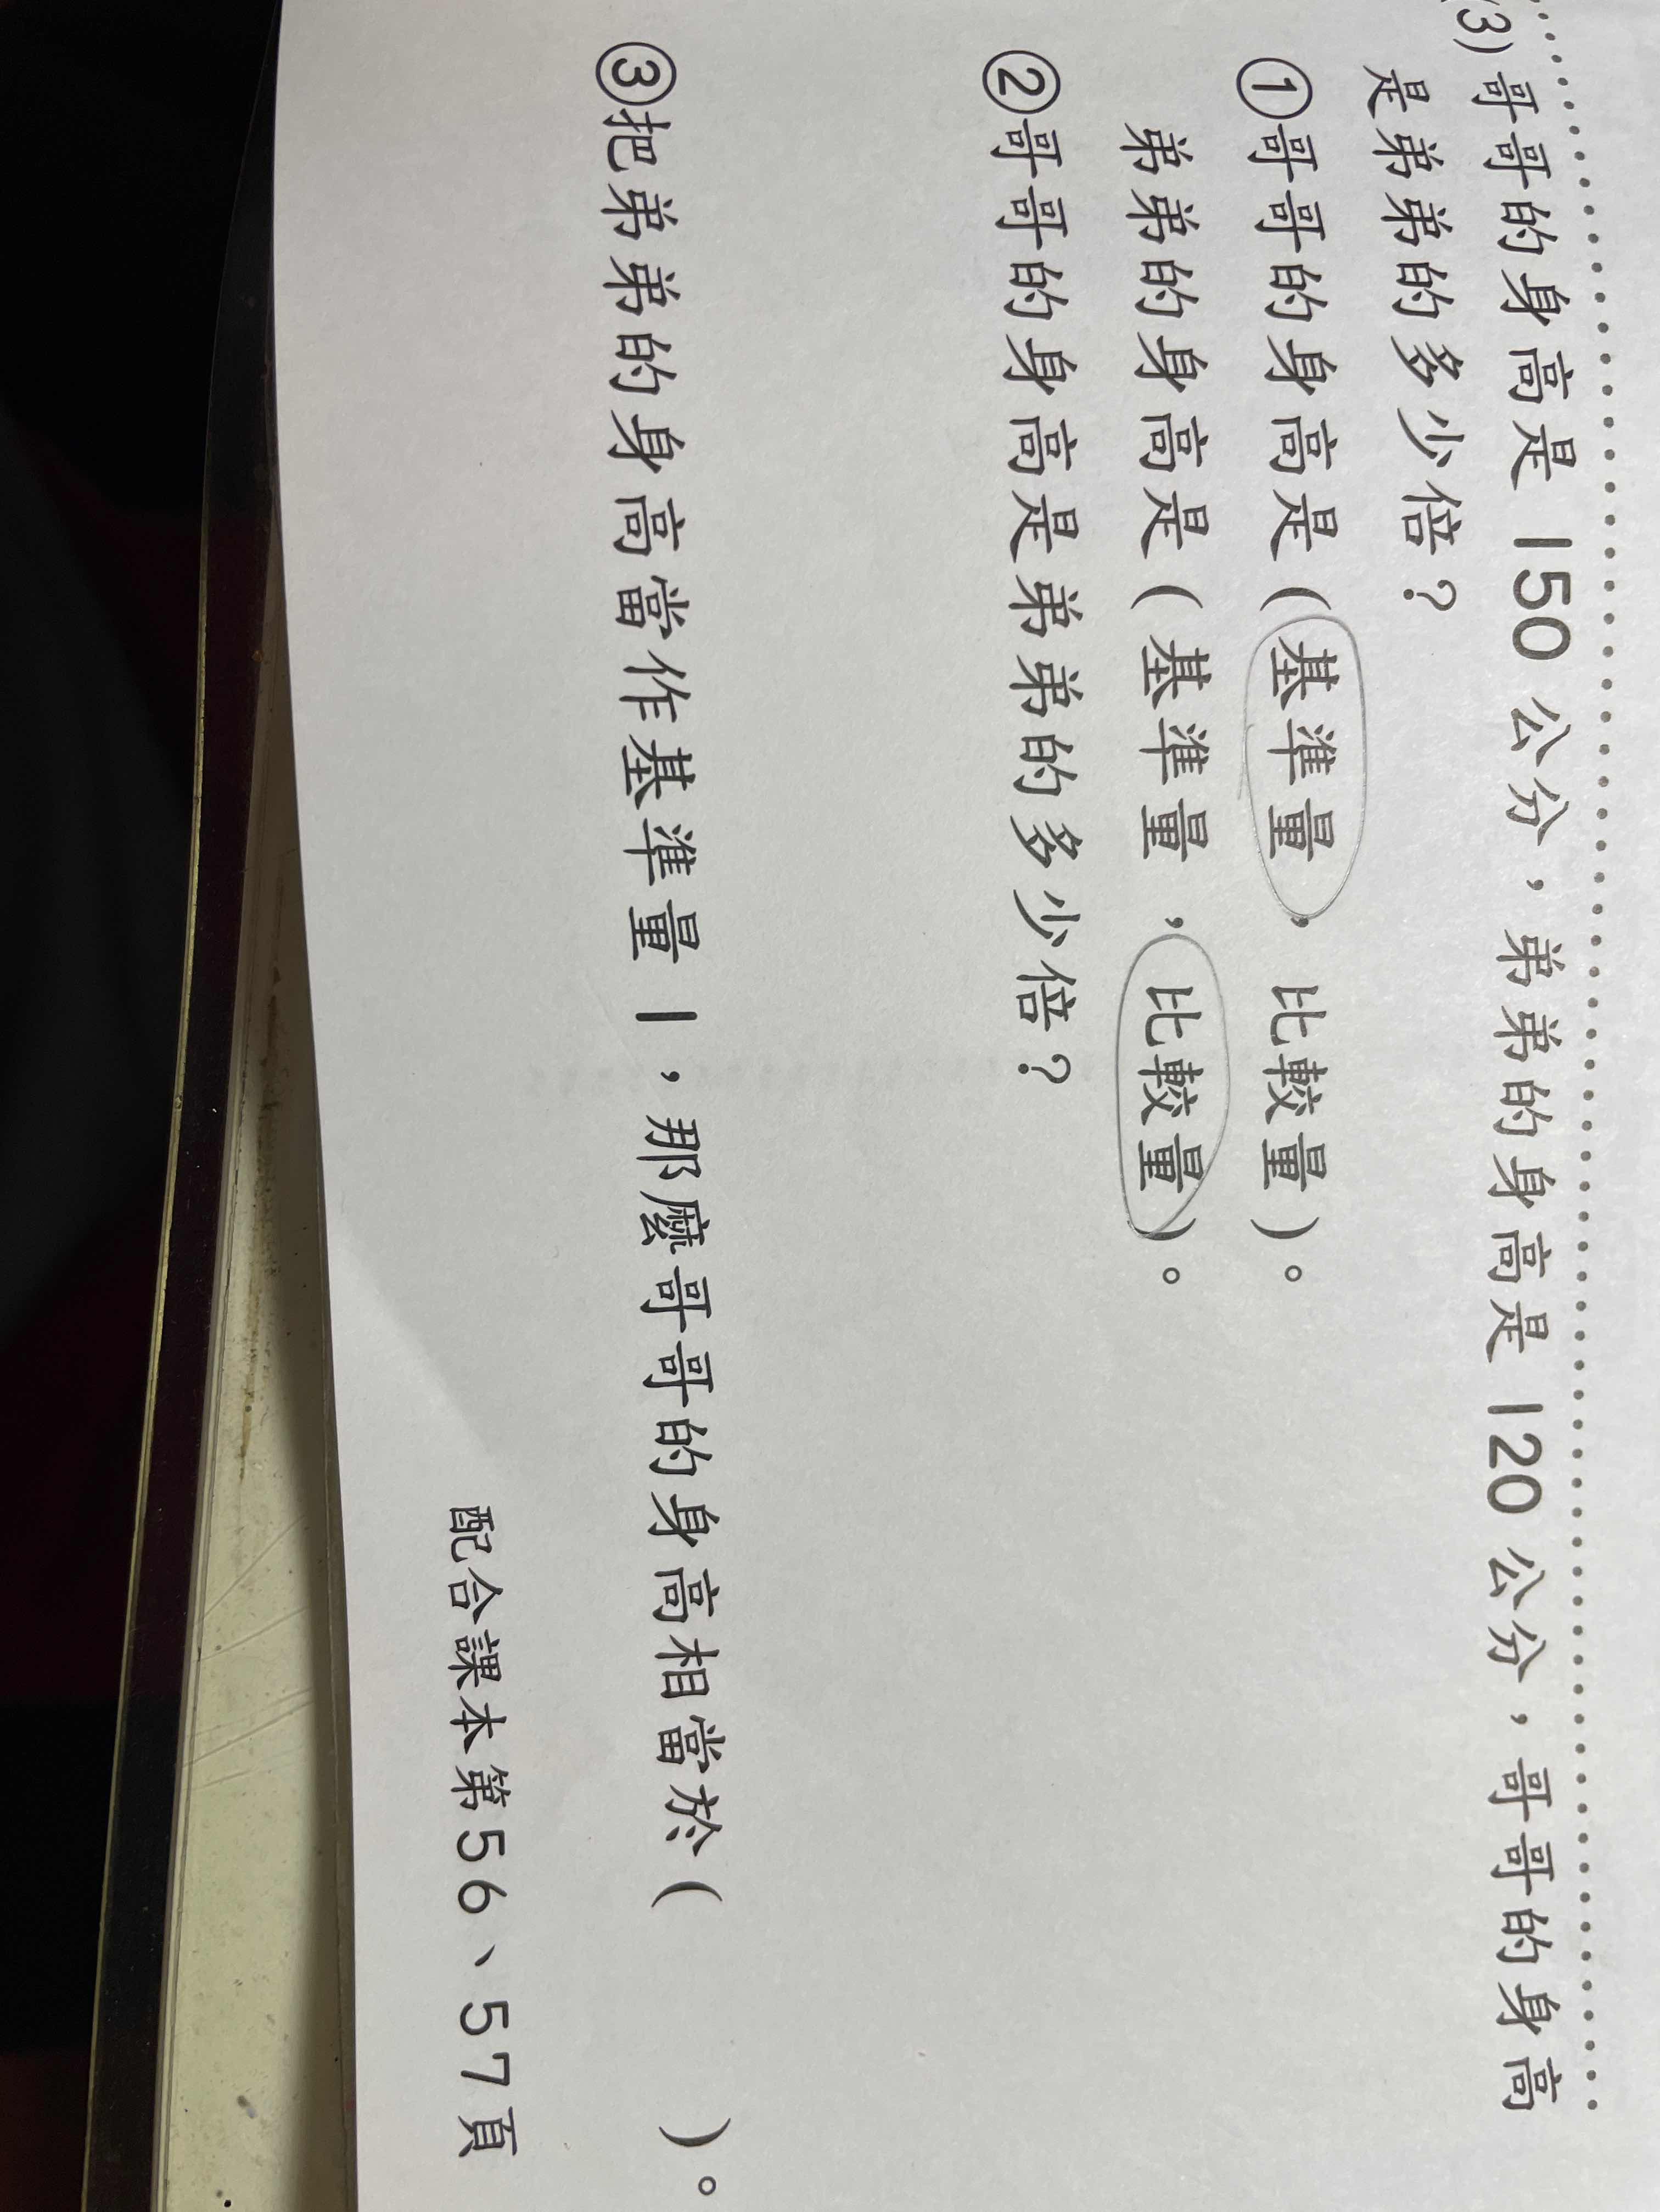 (3)哥哥的身高是 150 公分，弟弟的身高是 120 公分，哥哥的身高
是弟弟的多少倍？
①哥哥的身高是（基準量，比較量）。
弟弟的身高是（基準量，比較量）。
②哥哥的身高是弟弟的多少倍？
③把弟弟的身高當作基準量 1，那麼哥哥的身高相當於（　　）。
配合課本第56、57頁